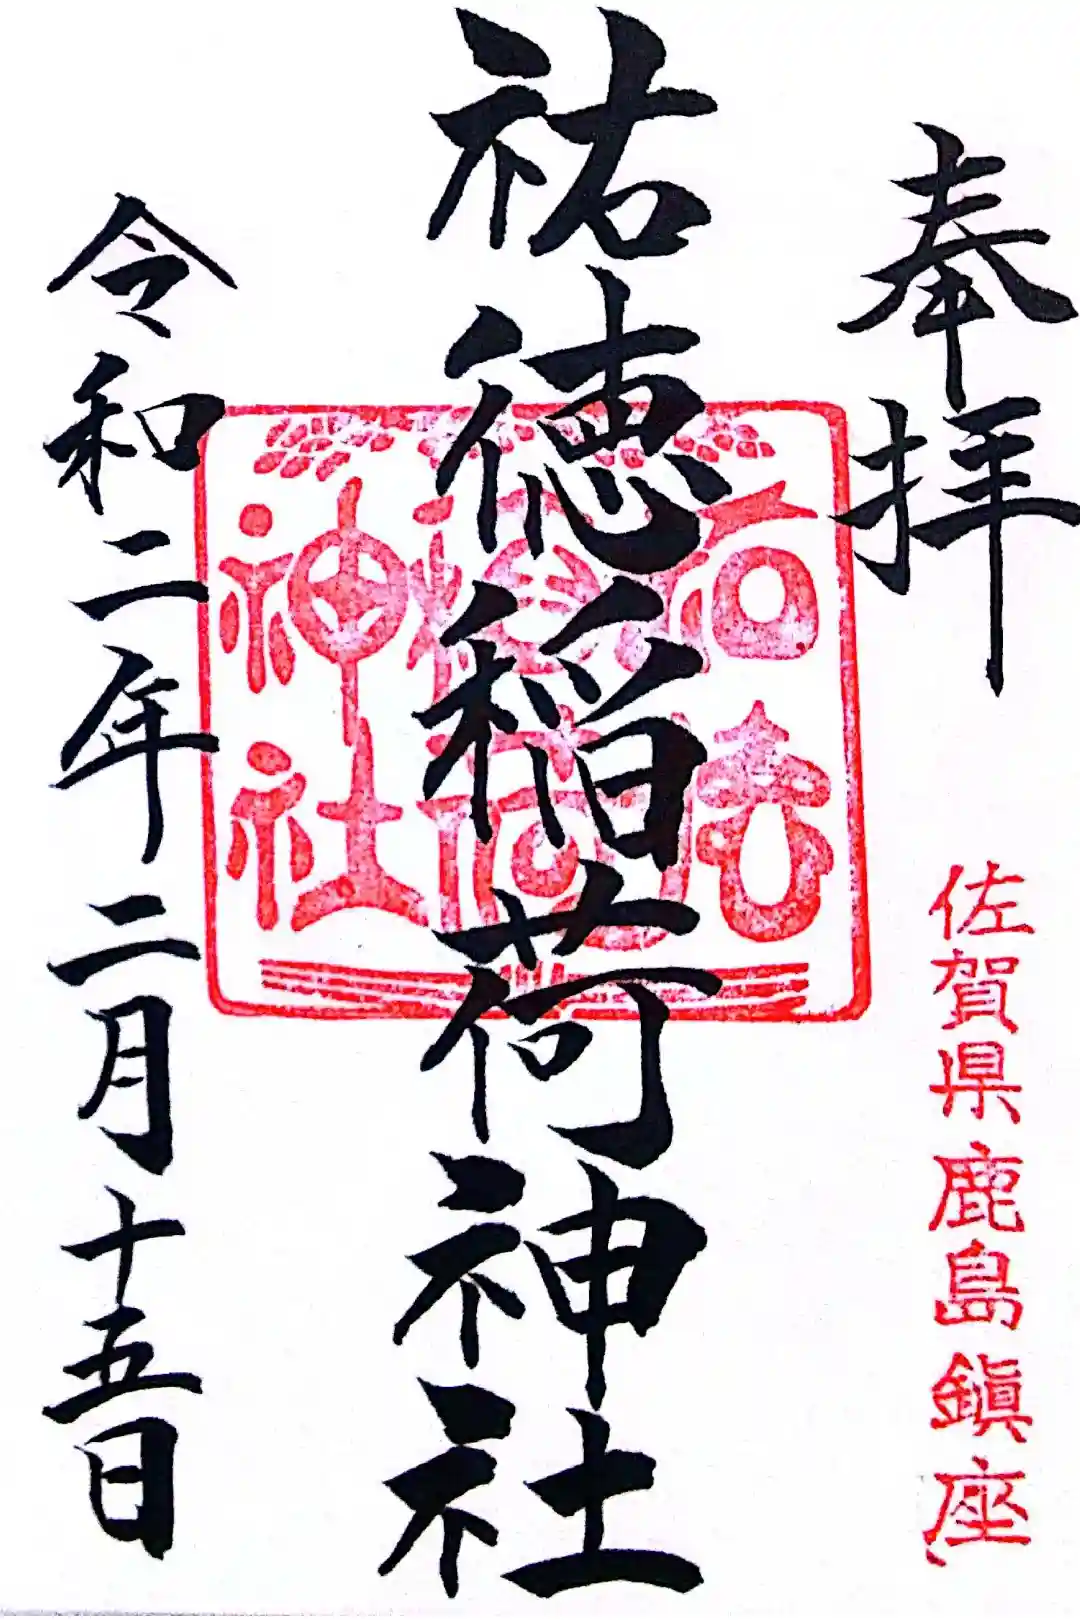 奉拝
佐賀県鹿島鎮座
祐徳稲荷神社
祐徳
稲荷
神社
令和二年二月十五日